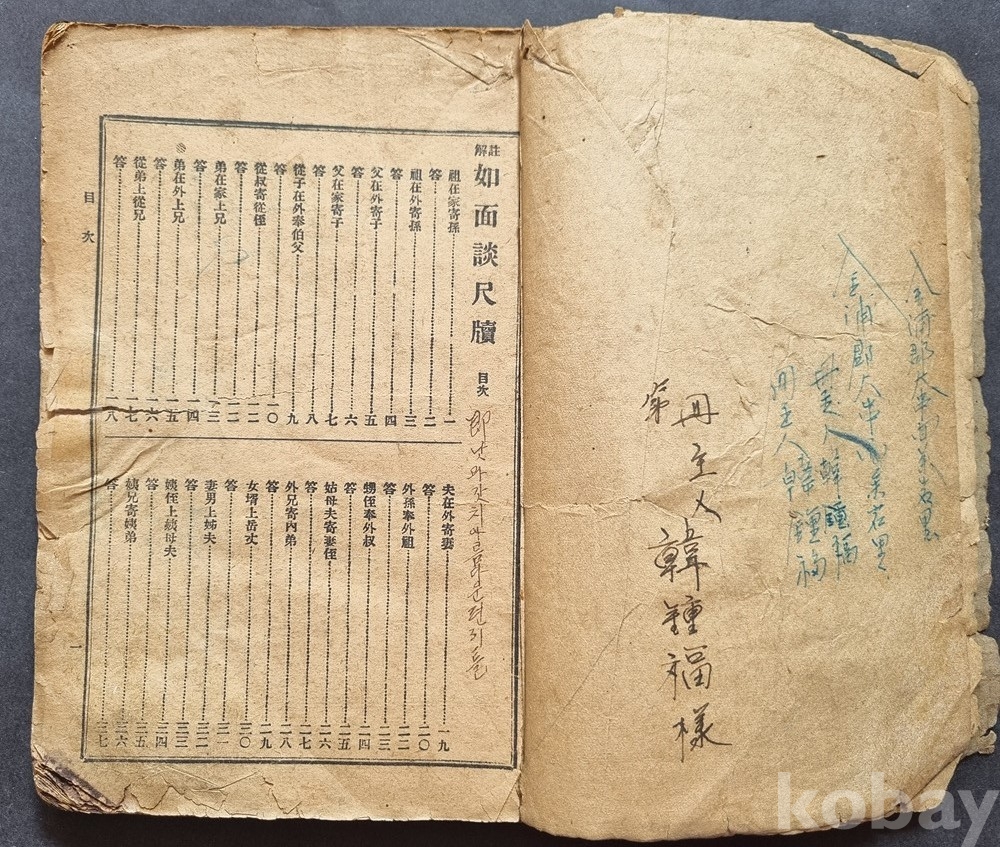 金浦郡大串面
金浦郡大串面
冊主人韓鍾福
冊主人韓鍾福
冊主人韓鍾福樣
第
註解 如面談尺牘 目次
祖在家寄孫 一
答 二
祖在外寄孫 三
答 四
父在外寄子 五
答 六
父在家寄子 七
答 八
從子在外奉伯父 九
答 一〇
從叔寄從侄 一一
答 一二
弟在家上兄 一三
答 一四
弟在外上兄 一五
答 一六
從弟上從兄 一七
答 一八
夫在外寄妻 一九
答 二〇
外孫奉外祖 二二
答 二三
甥侄奉外叔 二四
答 二五
姑母夫寄妻侄 二六
答 二七
外兄寄內弟 二八
答 二九
女壻上岳丈 三〇
答 三一
妻男上姊夫 三二
答 三三
姨侄上姨母夫 三四
答 三五
姨兄寄姨弟 三六
答 三七
目次
一
kobay